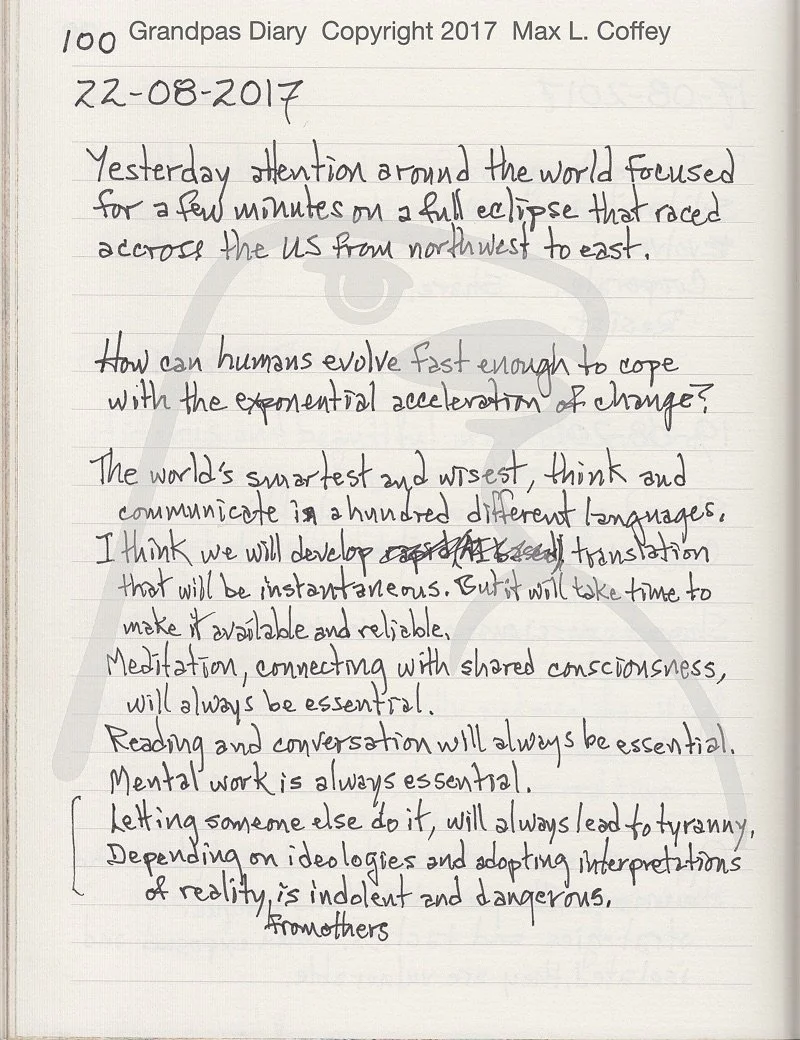 100 Grandpas Diary Copyright 2017 Max L. Coffey
22-08-2017
Yesterday attention around the world focused
for a few minutes on a full eclipse that raced
accross the US from northwest to east.
How can humans evolve fast enough to cope
with the exponential acceleration of change?
The world's smartest and wisest, think and
communicate in a hundred different languages.
I think we will develop translation
that will be instantaneous. But it will take time to
make it available and reliable.
Meditation, connecting with shared consciousness,
will always be essential.
Reading and conversation will always be essential.
Mental work is always essential.
Letting someone else do it, will always lead to tyranny.
Depending on ideologies and adopting interpretations
of reality, is indolent and dangerous.
from others